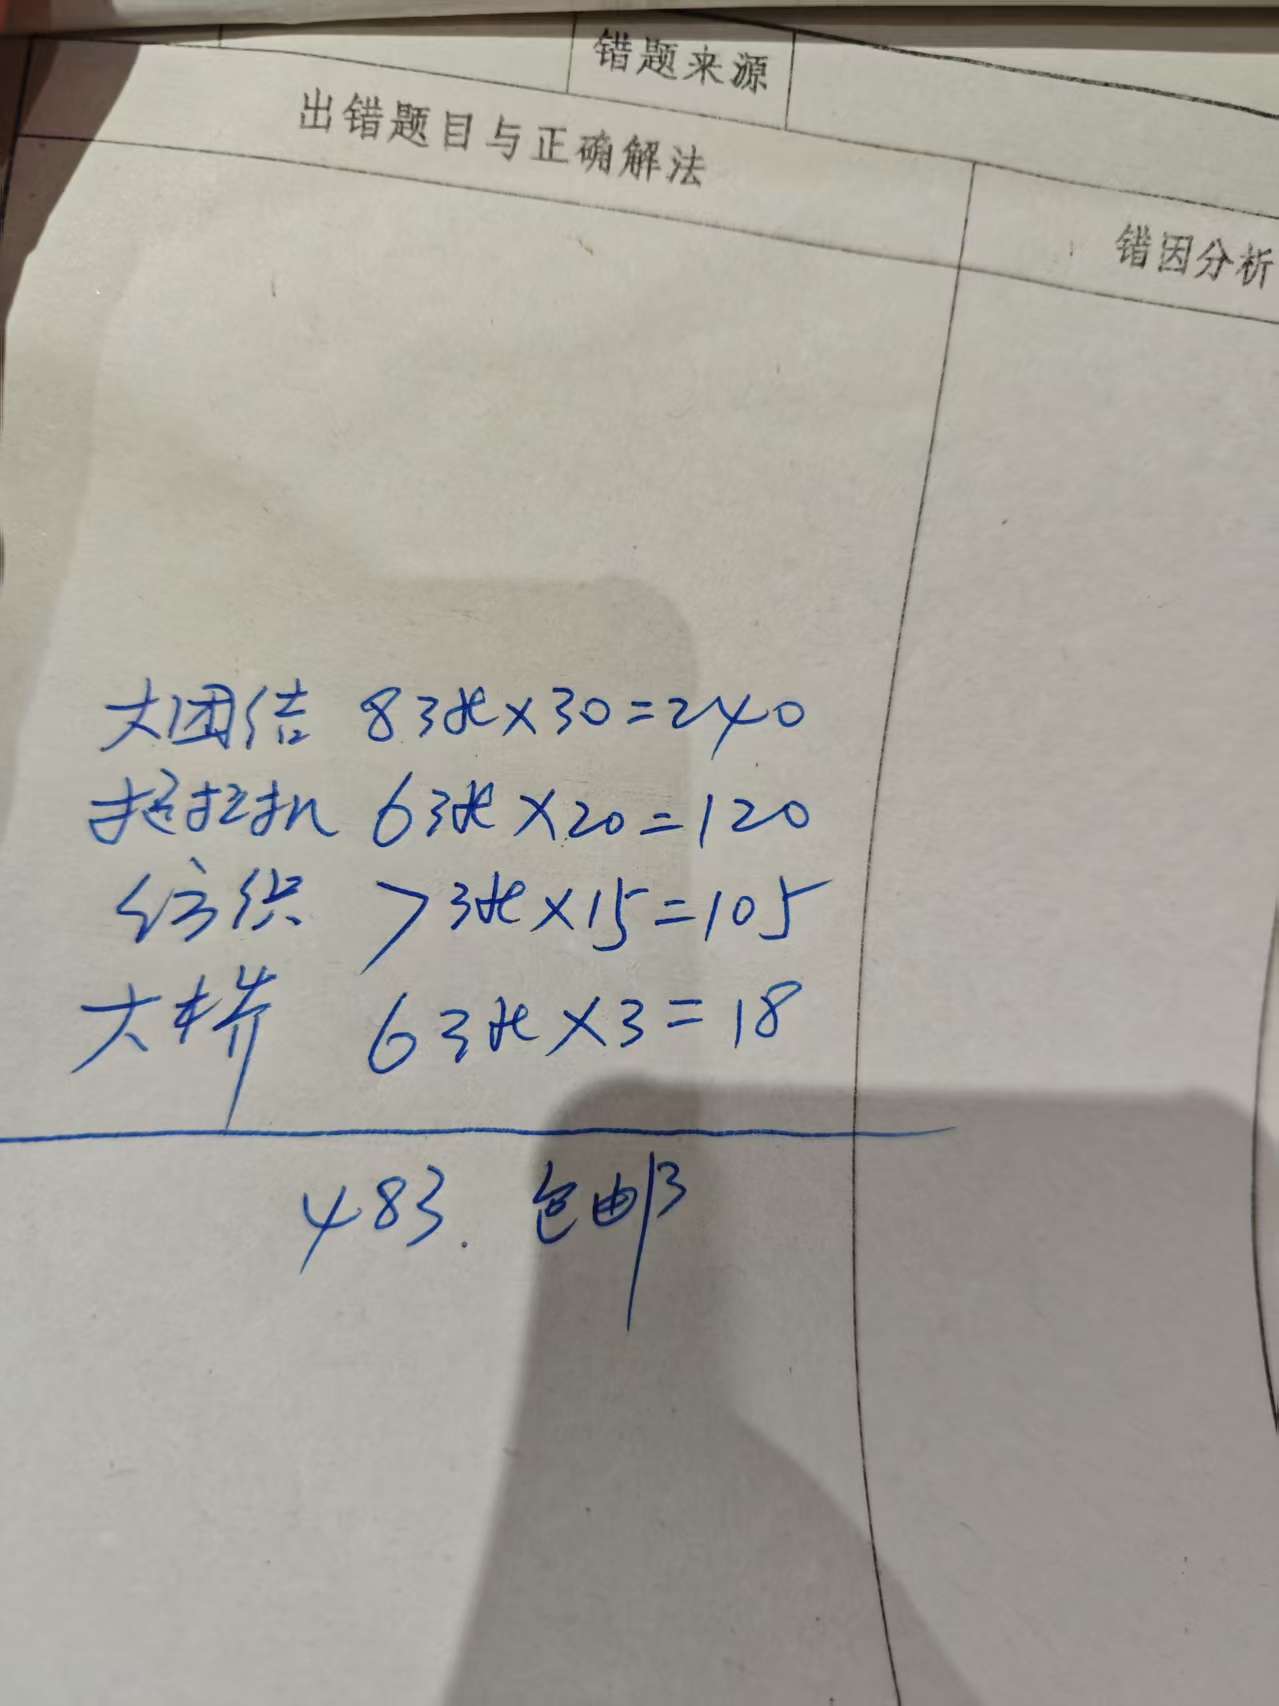 错题来源
出错题目与正确解法
错因分析
大团结 83张×30=240
拖拉机 63张×20=120
纺织 73张×15=105
大桥 63张×3=18
483. 包邮